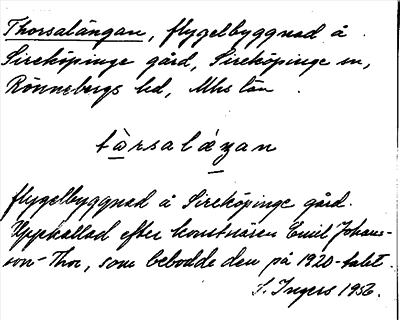 Thorsalängan, flygelbyggnad å
Sireköpinge gård, Sireköpinge sn,
Rönnebergs hd, Mhs län.
tàrsalǽŋan
flygelbyggnad å Sireköpinge gård.
Uppkallad efter konstnären Emil Johans-
son-Thor, som bebodde den på 1920-talet.
S. Ingers 1956.